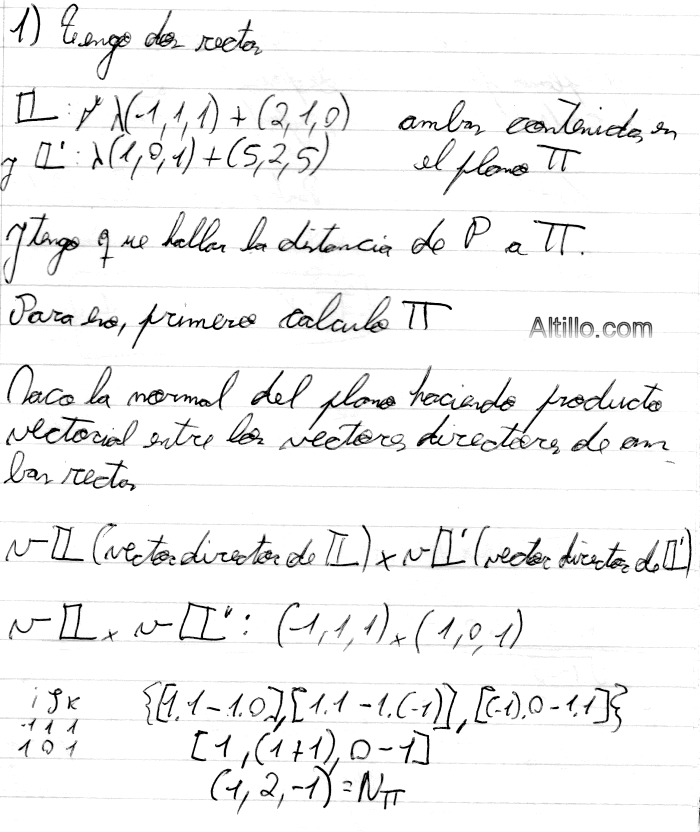 1) Tengo dos rectas
𝕃: λ(-1,1,1) + (2,1,0) ambas contenidas en
y 𝕃': λ(1,0,1) + (5,2,5) el plano π
y tengo que hallar la distancia de P a π.
Para eso, primero calculo π
Altillo.com
Saco la normal del plano haciendo producto
vectorial entre los vectores directores de am-
bas rectas
v𝕃 (vector director de 𝕃) x v𝕃' (vector director de 𝕃')
v𝕃 x v𝕃': (-1,1,1) x (1,0,1)
i j k {[1.1-1.0],[1.1-1.(-1)],[(-1).0-1.1]}
-1 1 1
1 0 1 [1,(1+1),0-1]
(1,2,-1) = Nπ